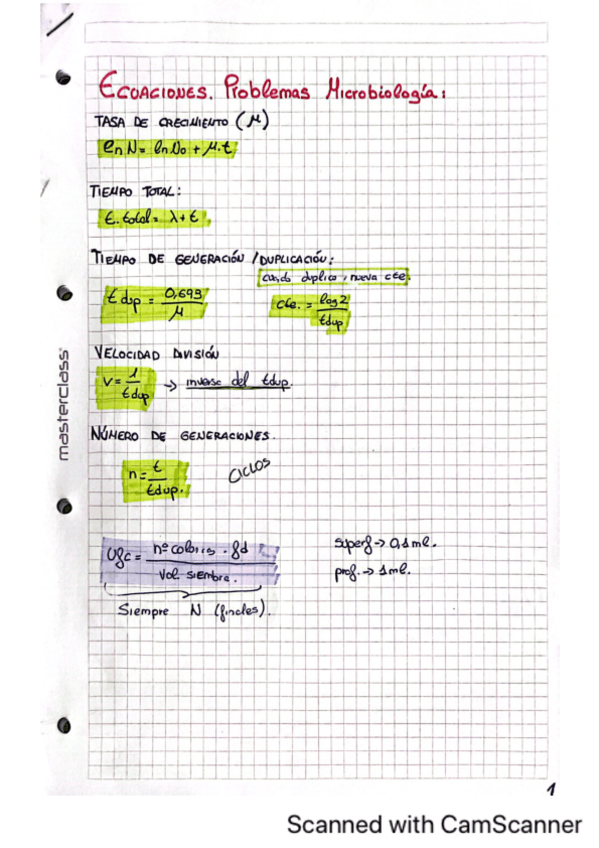 ECUACIONES. Problemas Microbiología:
TASA DE CRECIMIENTO (μ)
ln N = ln No + μ.t
TIEMPO TOTAL:
t. total = λ + t
TIEMPO DE GENERACIÓN / DUPLICACIÓN:
cuando duplica, nueva cte.
t dup = 0,693 / μ
cte. = log 2 / tdup
VELOCIDAD DIVISIÓN
V = 1 / t dup → inverso del tdup.
NÚMERO DE GENERACIONES.
n = t / tdup. CICLOS
Ufc = nº colonias . fd / Vol. siembra.
superf → 0,1 ml.
prof. → 1 ml.
Siempre N (finales).
masterclass
1
Scanned with CamScanner